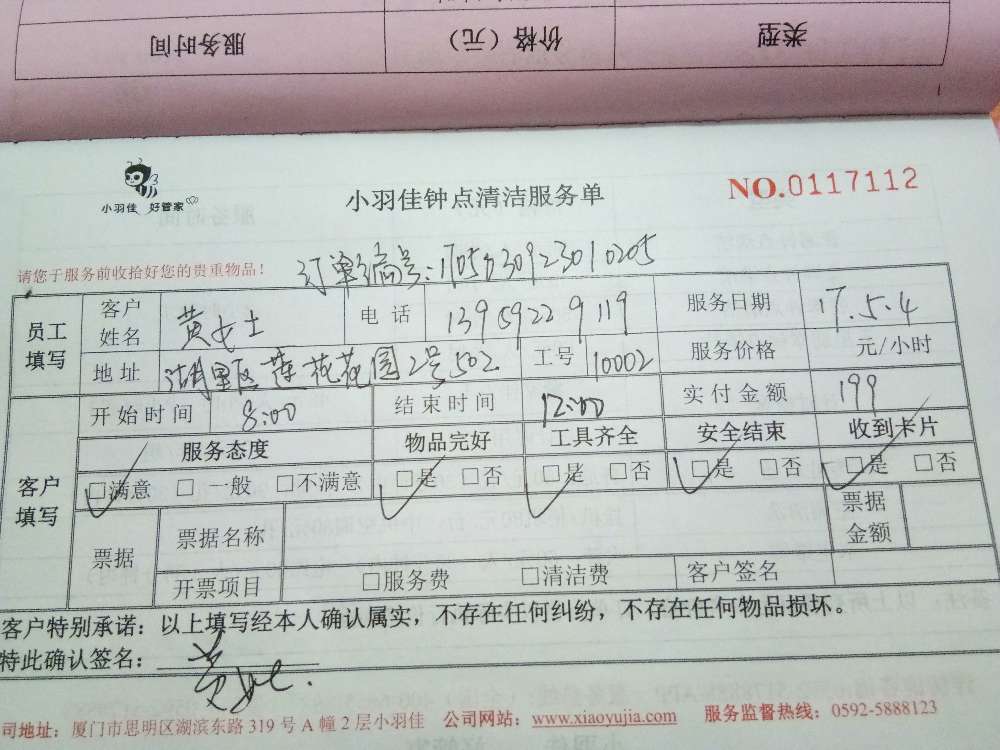 类型 价格（元） 服务时间
小羽佳 好管家
小羽佳钟点清洁服务单
NO.0117112
请您于服务前收拾好您的贵重物品！
订单编号：
员工填写 客户姓名 黄女士 电话 13959229119 服务日期 7.5.4
地址 湖里区莲花花园2号502 工号 10002 服务价格 元/小时
客户填写 开始时间 8:00 结束时间 12:00 实付金额 199
服务态度 物品完好 工具齐全 安全结束 收到卡片
☑满意 □一般 □不满意 ☑是 □否 ☑是 □否 ☑是 □否 ☑是 □否
票据 票据名称 票据金额
开票项目 □服务费 □清洁费 客户签名
客户特别承诺：以上填写经本人确认属实，不存在任何纠纷，不存在任何物品损坏。
特此确认签名：
司地址：厦门市思明区湖滨东路 319 号 A 幢 2 层小羽佳 公司网站：www.xiaoyujia.com 服务监督热线：0592-5888123